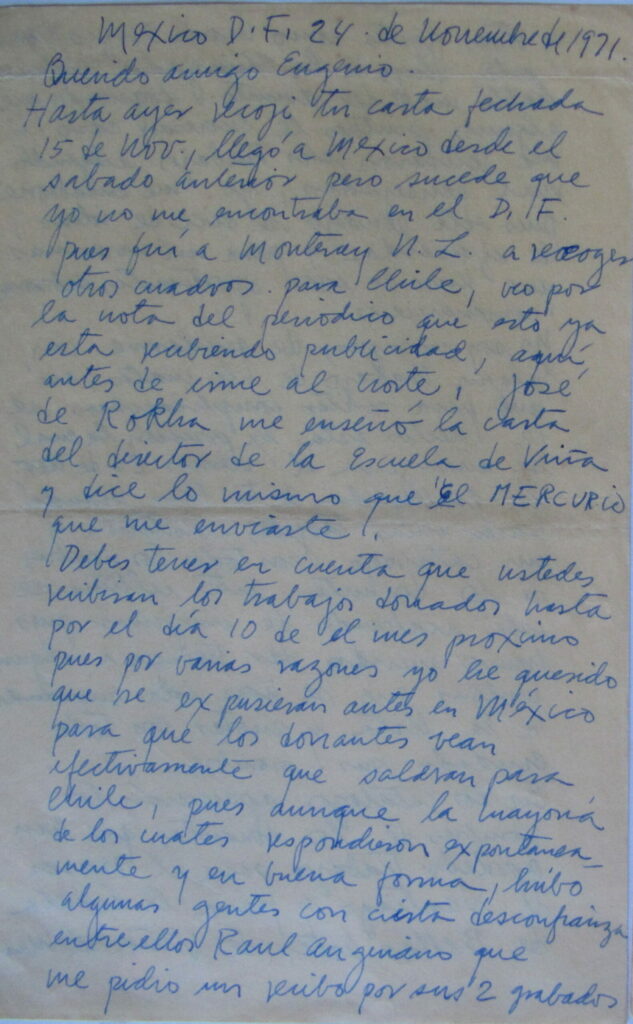 México D.F. 24 de Noviembre de 1971.
Querido amigo Eugenio.
Hasta ayer recojí tu carta fechada
15 de Nov., llegó a México desde el
sabado anterior pero sucede que
yo no me encontraba en el D.F.
pues fuí a Monterey N.L. a recoger
otros cuadros para Chile, veo por
la nota del periódico que esto ya
esta recibiendo publicidad, aquí,
antes de irme al norte, José
de Rokha me enseñó la carta
del director de la Escuela de Viña
y dice lo mismo que "El MERCURIO
que me enviaste".
Debes tener en cuenta que ustedes
recibiran los trabajos donados hasta
por el día 10 de el mes proximo
pues por varias razones yo he querido
que se expusieran antes en México
para que los donantes vean
efectivamente que saldran para
Chile, pues aunque la mayoría
de los cuates respondieron expontanea-
mente y en buena forma, hubo
algunas gentes con cierta desconfianza
entre ellos Raul Anguiano que
me pidio un recibo por sus 2 grabados